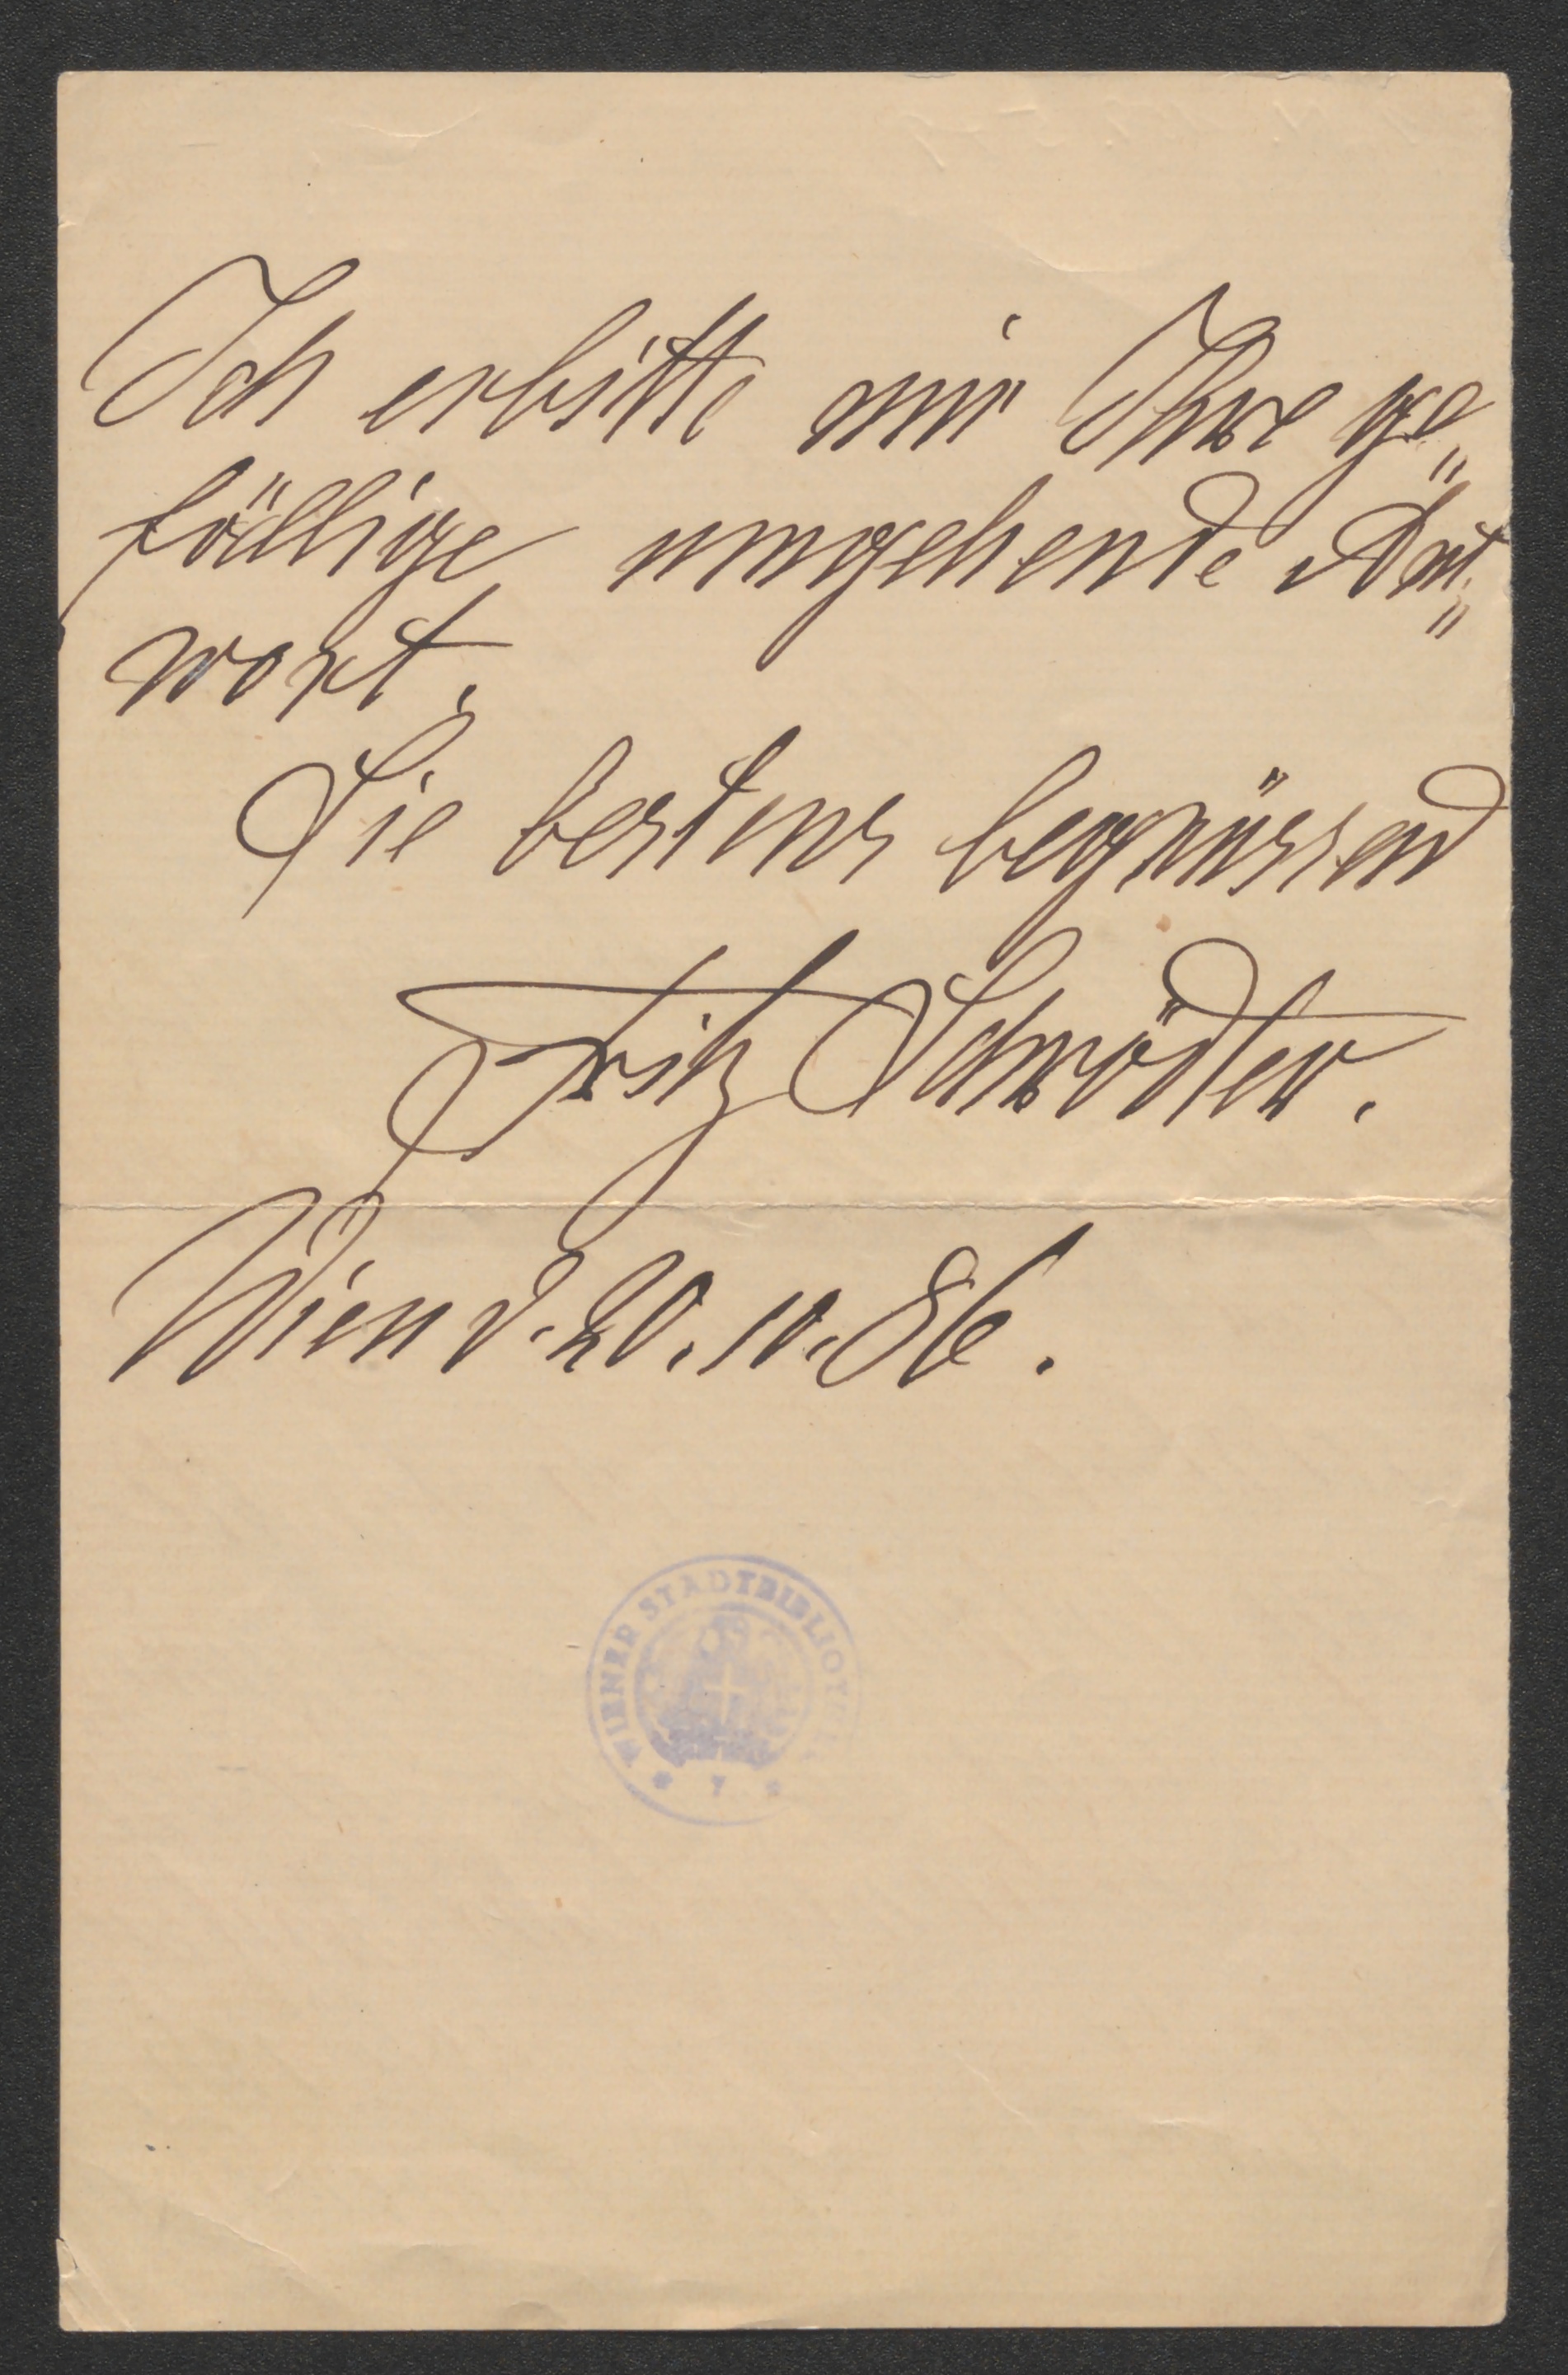 Ich erbitte mir Ihre ge„
fällige umgehende Ant„
wort.
Sie bestens begrüssend
Fritz Schrödter.
Wien d. 20. 10. 86.
WIENER STADTBIBLIOTHEK
* 7 *